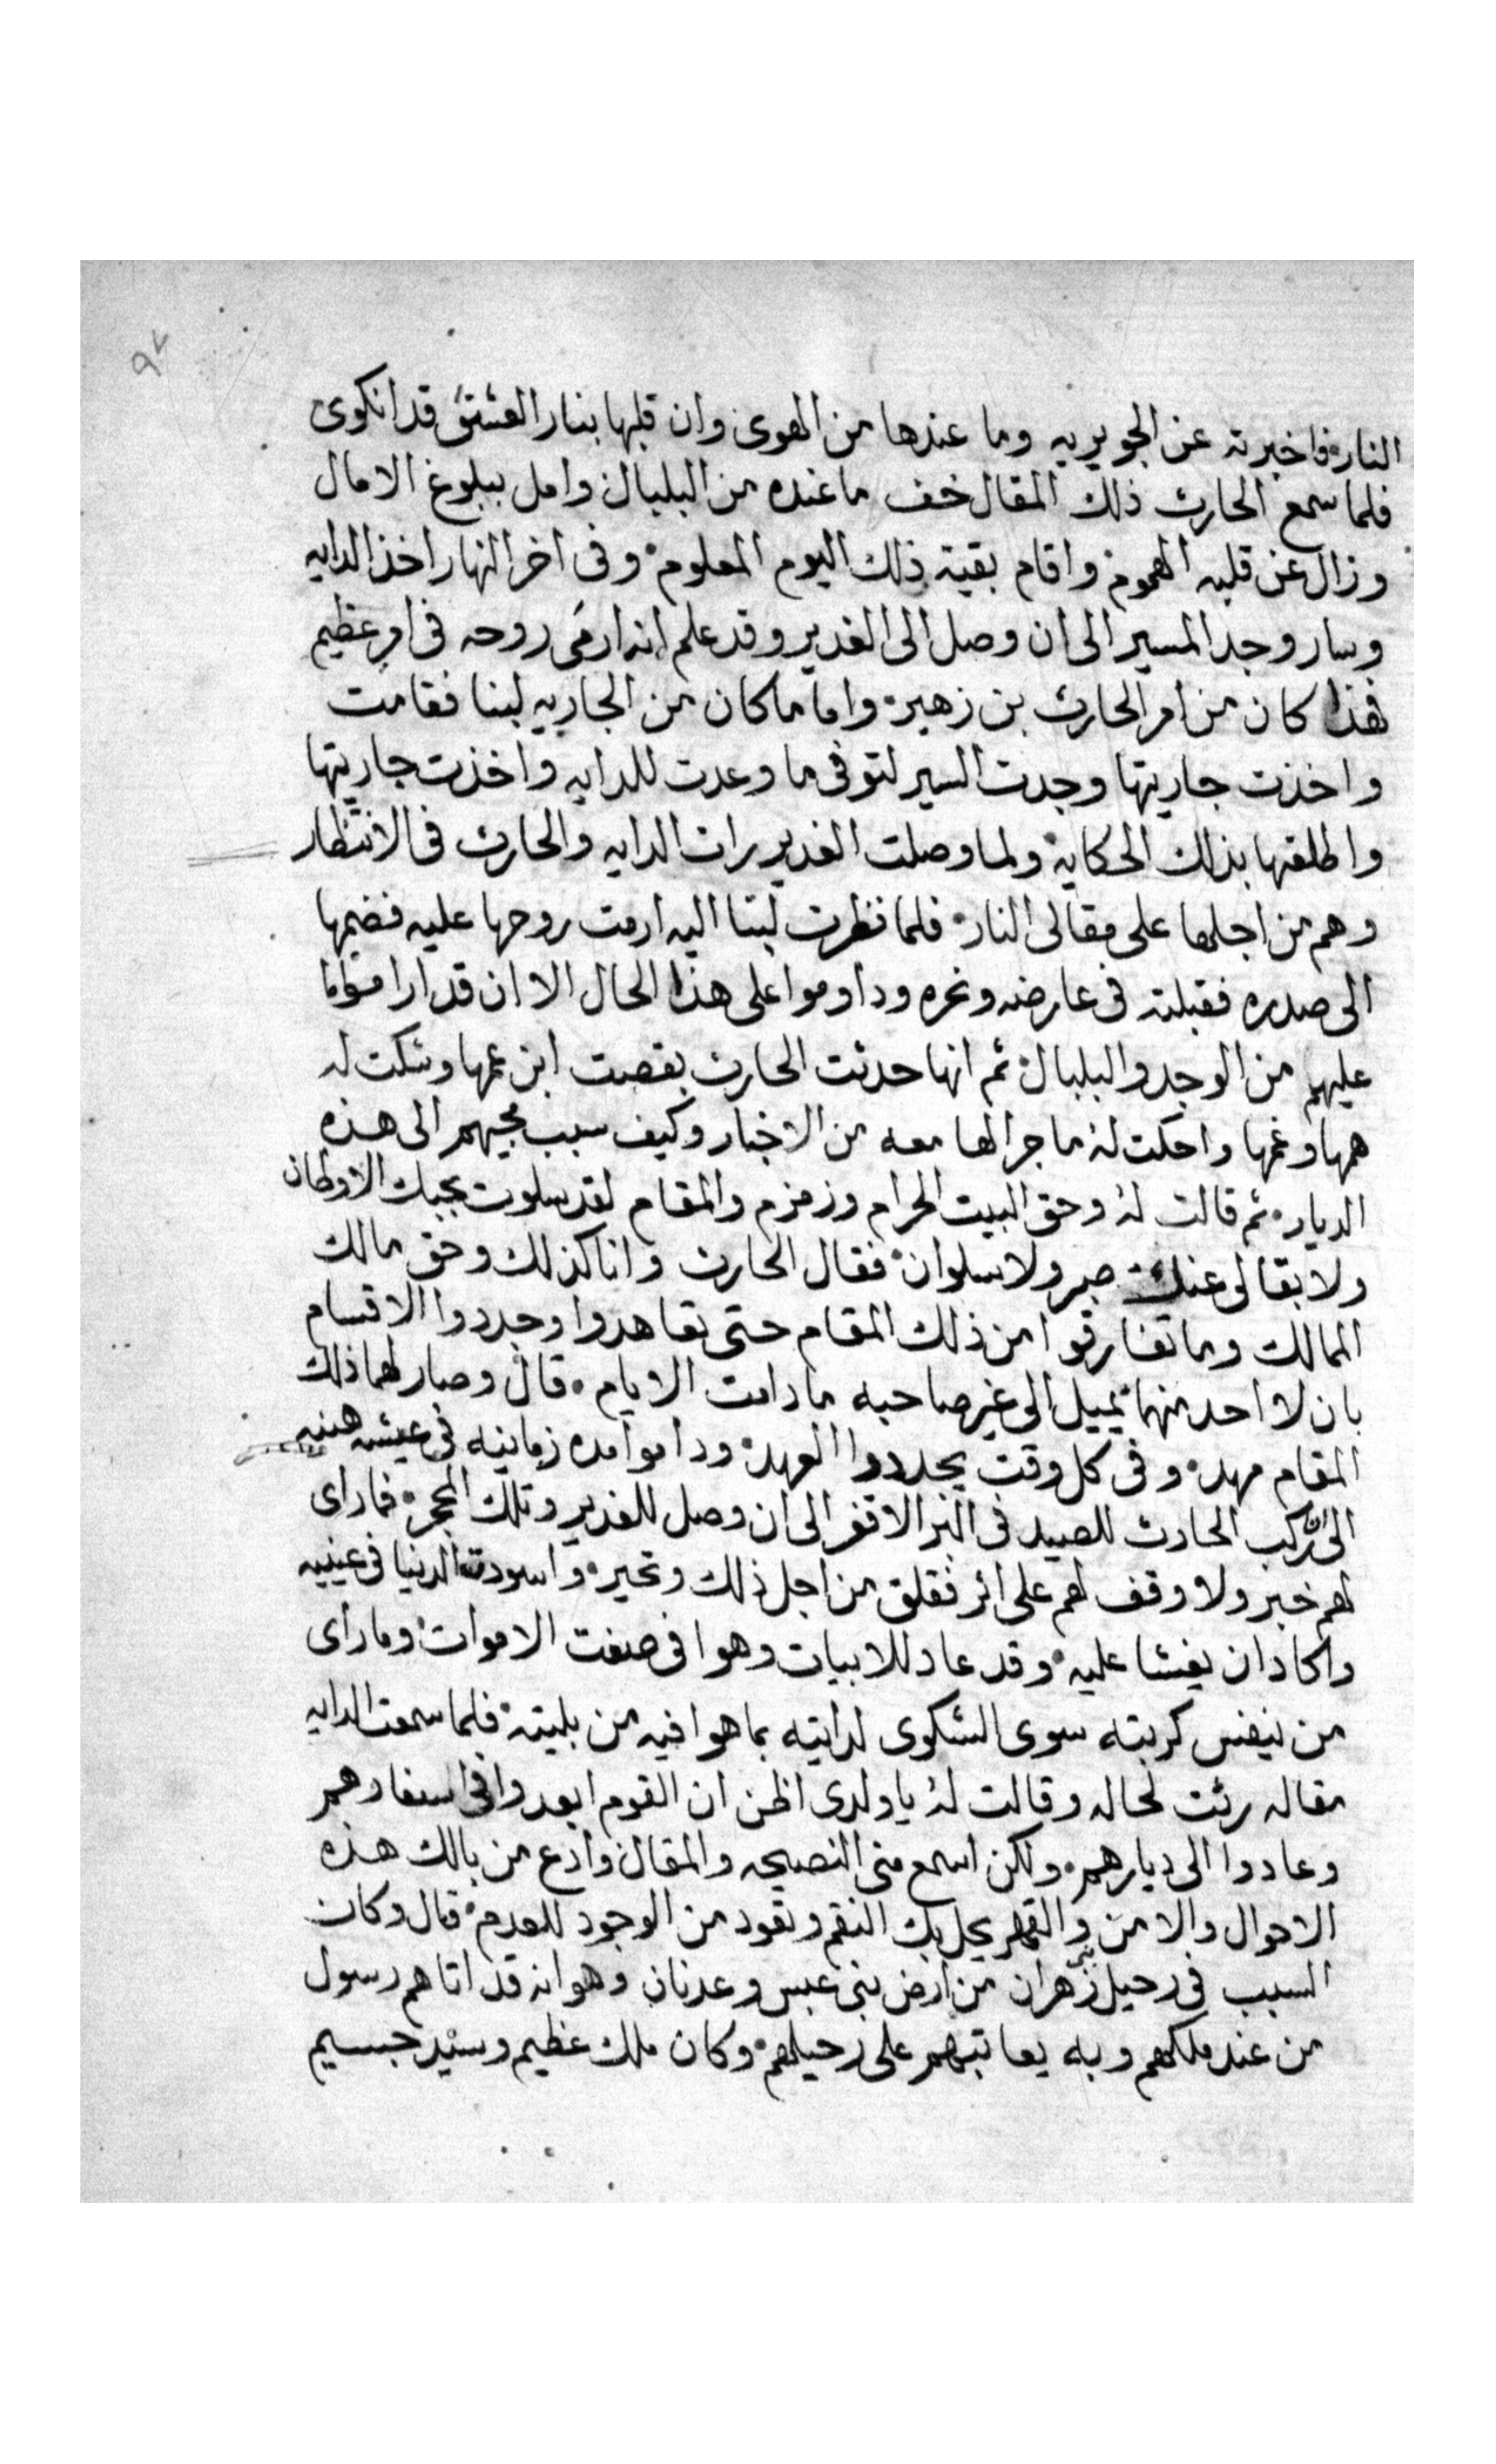 ٩٢
النار فاخبرته عن الجويريه وما عندها من الهوى وان قلبها بنار العشق قد انكوى
فلما سمع الحارث ذلك المقال خف ما عنده من البلبال وامل ببلوغ الامال
وزال عن قلبه الهموم واقام بقية ذلك اليوم المعلوم وفى اخر النهار اخذ الدايه
وسار وجد المسير الى ان وصل الى الغدير وقد علم انه ارمى روحه فى امر عظيم
فهذا كان من امر الحارث بن زهير واما ما كان من الجاريه لبنا فقامت
واخذت جاريتها وجدت السير لتوفى ما وعدت للدايه واخذت جاريتها
واطلعتها بذلك الحكاية ولما وصلت الغدير رات الدايه والحارث فى الانتظار
وهم من اجلها على مقالى النار فلما نظرت لبنا اليه ارمت روحها عليه فضمها
الى صدره فقبلته فى عارضه ونحره وداوموا على هذا الحال الا ان قد ارا
عليهم من الوجد والبلبال ثم انها حدثت الحارث بقصت ابن عمها وشكت له
همها وغمها واحكت له ما جرا لها معه من الاخبار وكيف سبب مجيهم الى هذه
الديار ثم قالت له وحق البيت الحرام وزمزم والمقام لقد سلوت بحبك الاوطان
ولا بقا لى عنك صبر ولا سلوان فقال الحارث وانا كذلك وحق مالك
الممالك وما تفارقوا من ذلك المقام حتى تعاهدوا وجددوا الاقسام
بان لا احد منهما يميل الى غير صاحبه ما دامت الايام قال وصار لهما ذلك
المقام مهد وفى كل وقت يجددوا العهد وداموا مده زمانيه فى عيشه هنيه
الى ان ركب الحارث للصيد فى البر الاقفر الى ان وصل للغدير وتلك الحجر فما راى
لهم خبر ولا وقف لهم على اثر فقلق من اجل ذلك وتحير واسودت الدنيا فى عينيه
واكاد ان يغشا عليه وقد عاد للابيات وهوا فى صفت الاموات وما راى
من نيفس كربته سوى الشكوى لدايته بما هوا فيه من بليته فلما سمعت الدايه
مقاله رثت لحاله وقالت له يا ولدى اظن ان القوم ابعدوا فى اسفارهم
وعادوا الى ديارهم ولكن اسمع منى النصيحه والمقال وادع من بالك هذه
الاحوال والا من والقهر يحل بك النقم وتعود من الوجود للعدم قال وكان
السبب فى رحيل بنى زهران من ارض بنى عبس وعدنان وهوانه قد اتاهم رسول
من عند ملكهم وبه يعاتبهم على رحيلهم وكان ملك عظيم وسيد جسيم